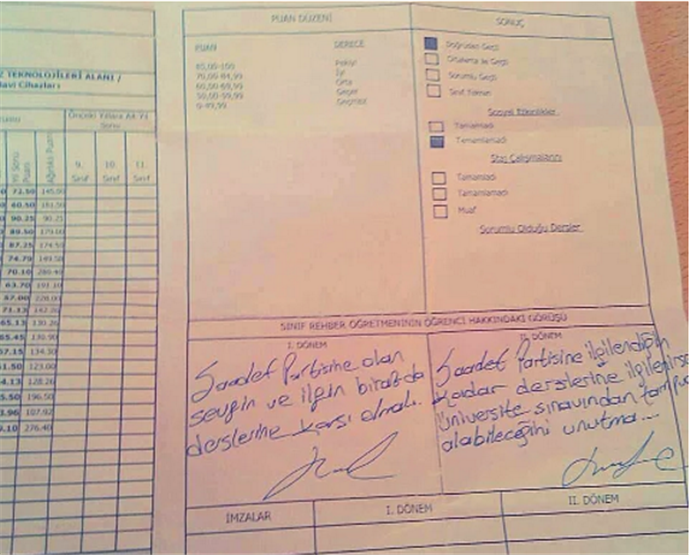 Z TEKNOLOJİLERİ ALANI /
avi Cihazları
Önceki Yıllara Ait Yıl
Sonu
Yıl Sonu
Puanı
Ağırlıklı Puanı
9.
Sınıf
10.
Sınıf
11.
Sınıf
72.50 145.00
60.50 181.50
90.25 90.25
89.50 179.00
87.25 174.50
74.79 149.58
70.10 280.40
63.70 191.10
87.00
71.13 142.26
65.13 130.26
65.45 130.90
67.15 134.30
61.50 123.00
64.13 128.26
196.50
107.92
276.40
PUAN DÜZENİ
PUAN DERECE
85,00-100 Pekiyi
70,00-84,99 İyi
60,00-69,99 Orta
50,00-59,99 Geçer
0-49,99 Geçmez
SONUÇ
Doğrudan Geçti
Ortalama ile Geçti
Sorumlu Geçti
Sınıf Tekrarı
Sosyal Etkinlikler
Tamamladı
Tamamlamadı
Staj Çalışmalarını
Tamamladı
Tamamlamadı
Muaf
Sorumlu Olduğu Dersler
SINIF REHBER ÖĞRETMENİNİN ÖĞRENCİ HAKKINDAKİ GÖRÜŞÜ
I. DÖNEM
Saadet Partisine olan
sevgin ve ilgin biraz da
derslerine karşı olmalı.
II. DÖNEM
Saadet Partisine ilgilendiğin
kadar derslerine ilgilenirse
üniversite sınavından tam pua
alabileceğini unutma...
İMZALAR
I. DÖNEM
II. DÖNEM